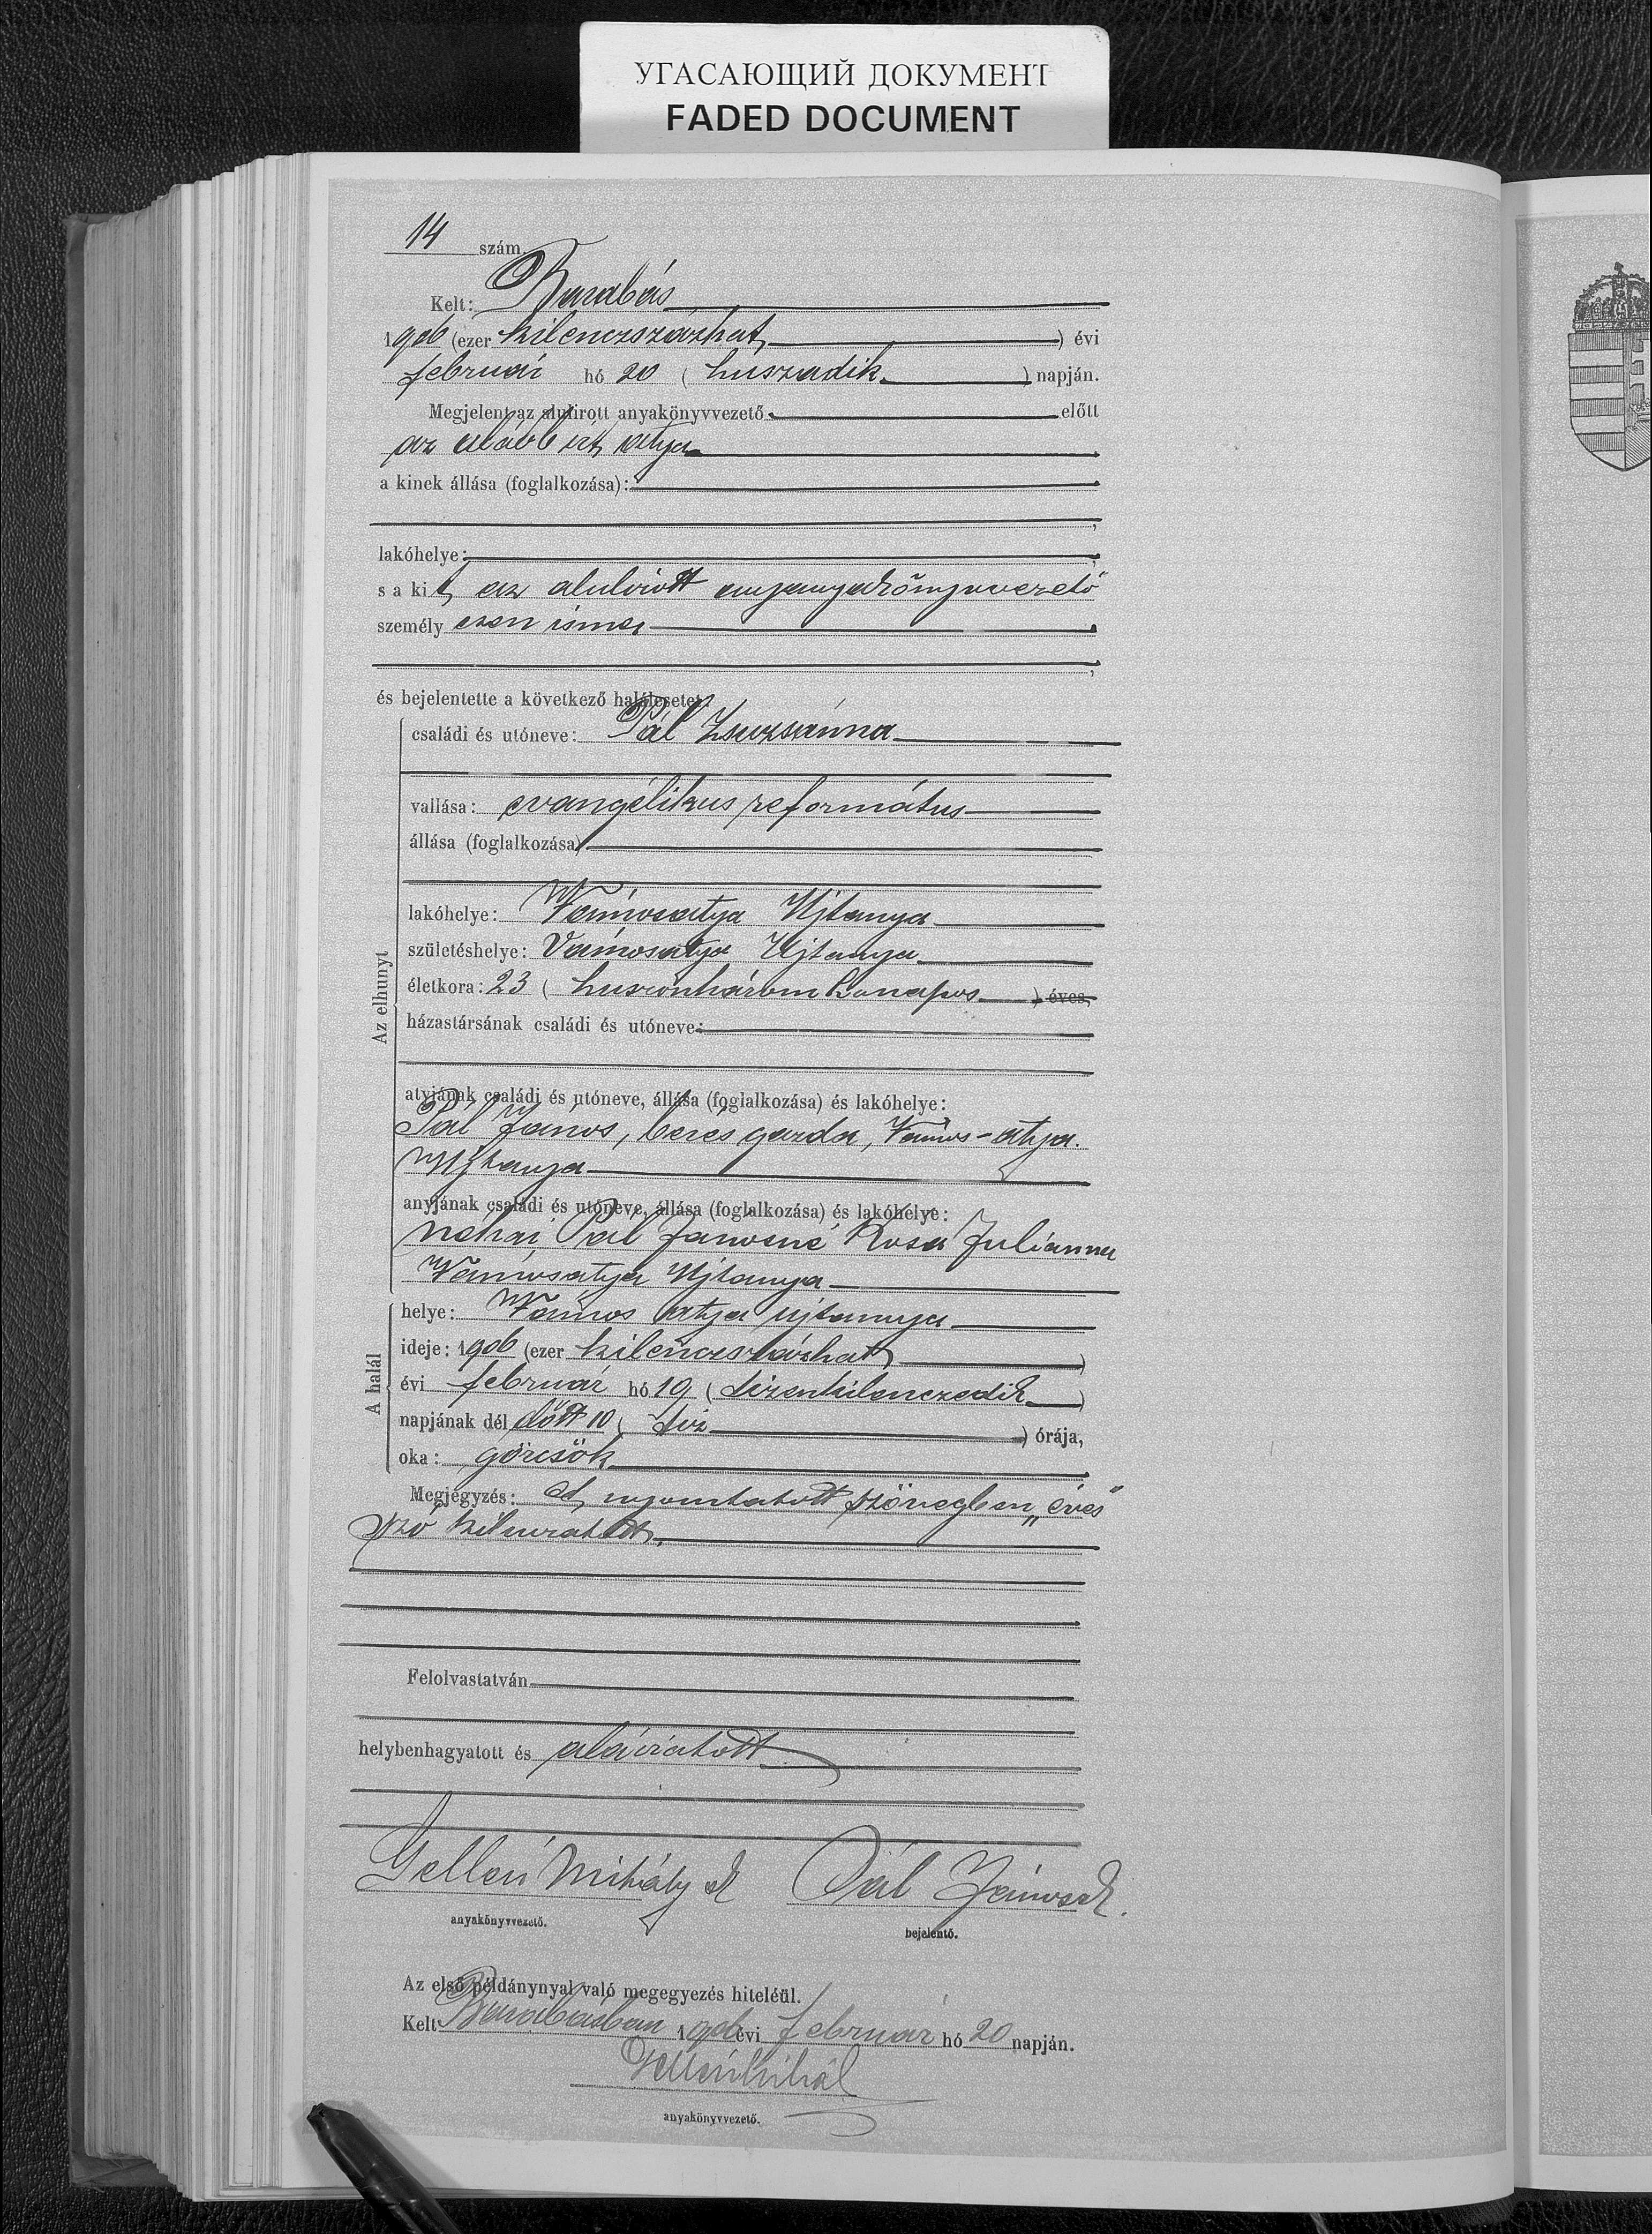 УГАСАЮЩИЙ ДОКУМЕНТ
FADED DOCUMENT
14 szám
Kelt: Barabás
1906 (ezer kilenczszázhat) évi
február hó 20 (huszadik) napján.
Megjelent az alulirott anyakönyvvezető előtt
az alább irt atya
a kinek állása (foglalkozása):
lakóhelye:
s a kit az alulirott anyakönyvvezető
személyesen ismer
és bejelentette a következő halálesetet:
Az elhunyt
családi és utóneve: Pál Zsuzsánna
vallása: evangélikus református
állása (foglalkozása)
lakóhelye: Vámosatya Ujtanya
születéshelye: Vámosatya Ujtanya
életkora: 23 (huszonhárom hónapos) éves,
házastársának családi és utóneve:
atyjának családi és utóneve, állása (foglalkozása) és lakóhelye:
Pál János, béres gazda, Vámos-atya.
Ujtanya
anyjának családi és utóneve, állása (foglalkozása) és lakóhelye:
néhai Pál Jánosné Rosa Julianna
Vámosatya Ujtanya
A halál
helye: Vámos atya ujtanya
ideje: 1906 (ezer kilenczszázhat)
évi február hó 19 (tizenkilenczedik)
napjának dél előtt 10 (tiz) órája,
oka: görcsök
Megjegyzés: A nyomtatott szövegben „éves"
szó kihuzatott.
Felolvastatván
helybenhagyatott és aláiratott
Gellén Mihály sk Pál János sk.
anyakönyvvezető. bejelentő.
Az első példánynyal való megegyezés hiteléül.
Kelt Barabásban 1906 évi február hó 20 napján.
Gellén Mihál
anyakönyvvezető.